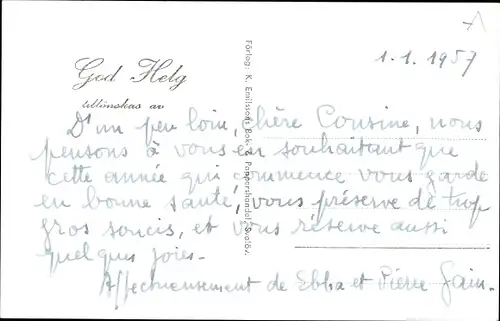 1.1.1957
God Helg
tillönskas av
Förlog: K. Emilssons Bok- & Pappershandel, Svalöv.
D'un peu loin, chère Cousine, nous
pensons à vous en souhaitant que
cette année qui commence vous garde
en bonne santé, vous préserve de trop
gros soucis, et vous réserve aussi
quelques joies.
Affectueusement de Ebba et Pierre Gain.